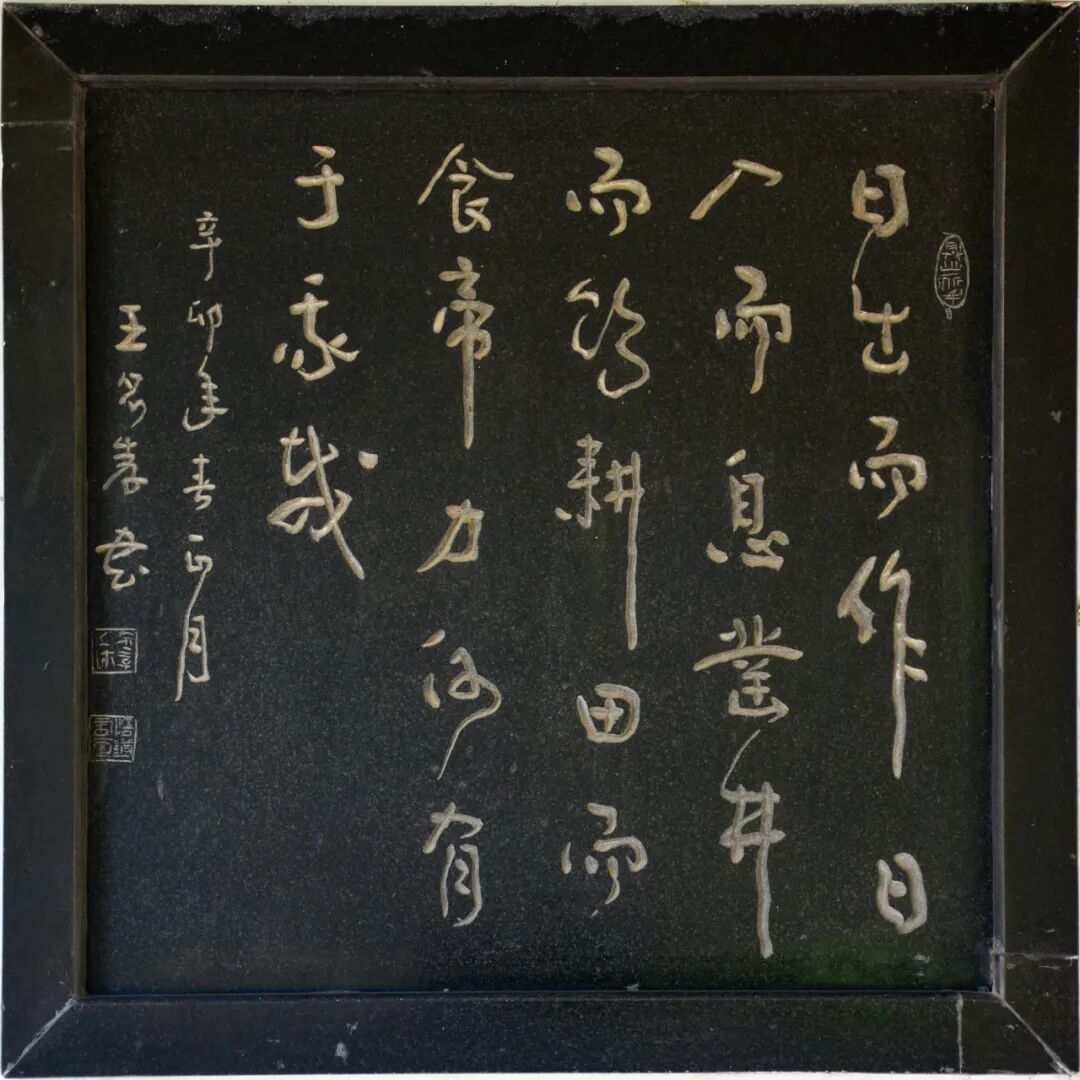 日出而作日
入而息凿井
而饮耕田而
食帝力何有
于我哉
辛卯年春正月
王书